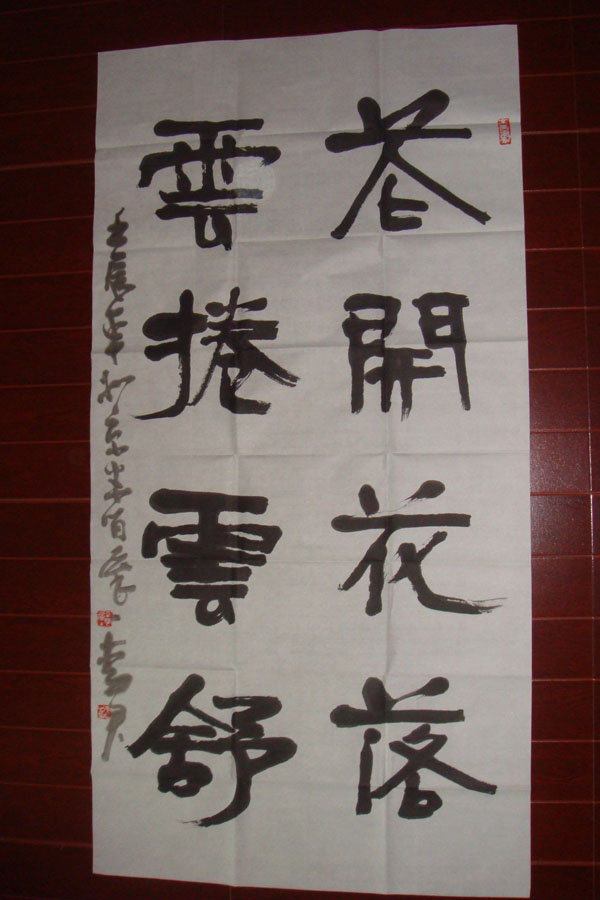 花開花落
雲捲雲舒
壬辰年